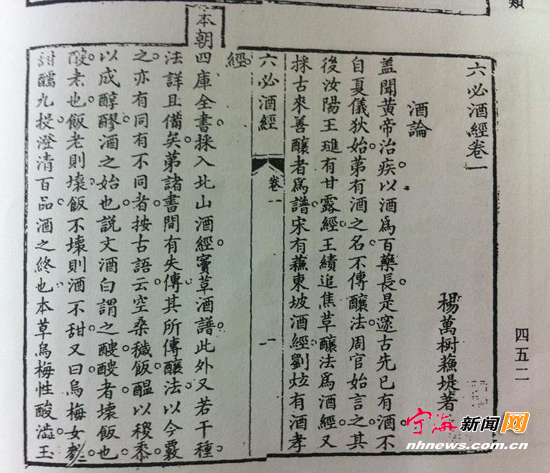 類
四五二
六必酒經卷一
酒論
楊萬树蘓堤著
盖聞黄帝治疾以酒爲百藥長是邃古先已有酒不
自夏儀狄始苐有酒之名不傳釀法周官始言之其
後汝陽王璡有甘露經王績追焦草釀法爲酒經又
採古來善釀者爲譜宋有蘓東坡酒經劉炫有酒孝
六必酒經
卷一
一
經
本朝四庫全書採入北山酒經竇草酒譜此外又若干種
法詳且備矣苐諸書間有失傳其所傳釀法以今覈
之亦有同有不同者按古語云空桒穢飯醖以稷黍
以成醇醪酒之始也説文酒白謂之醙醙者壊飯也
酸老也飯老則壊飯不壊則酒不甜又曰烏梅女
甜醹九投澄清百品酒之終也本草烏梅性酸澁玉
宁海新闻网
nhnews.com.cn